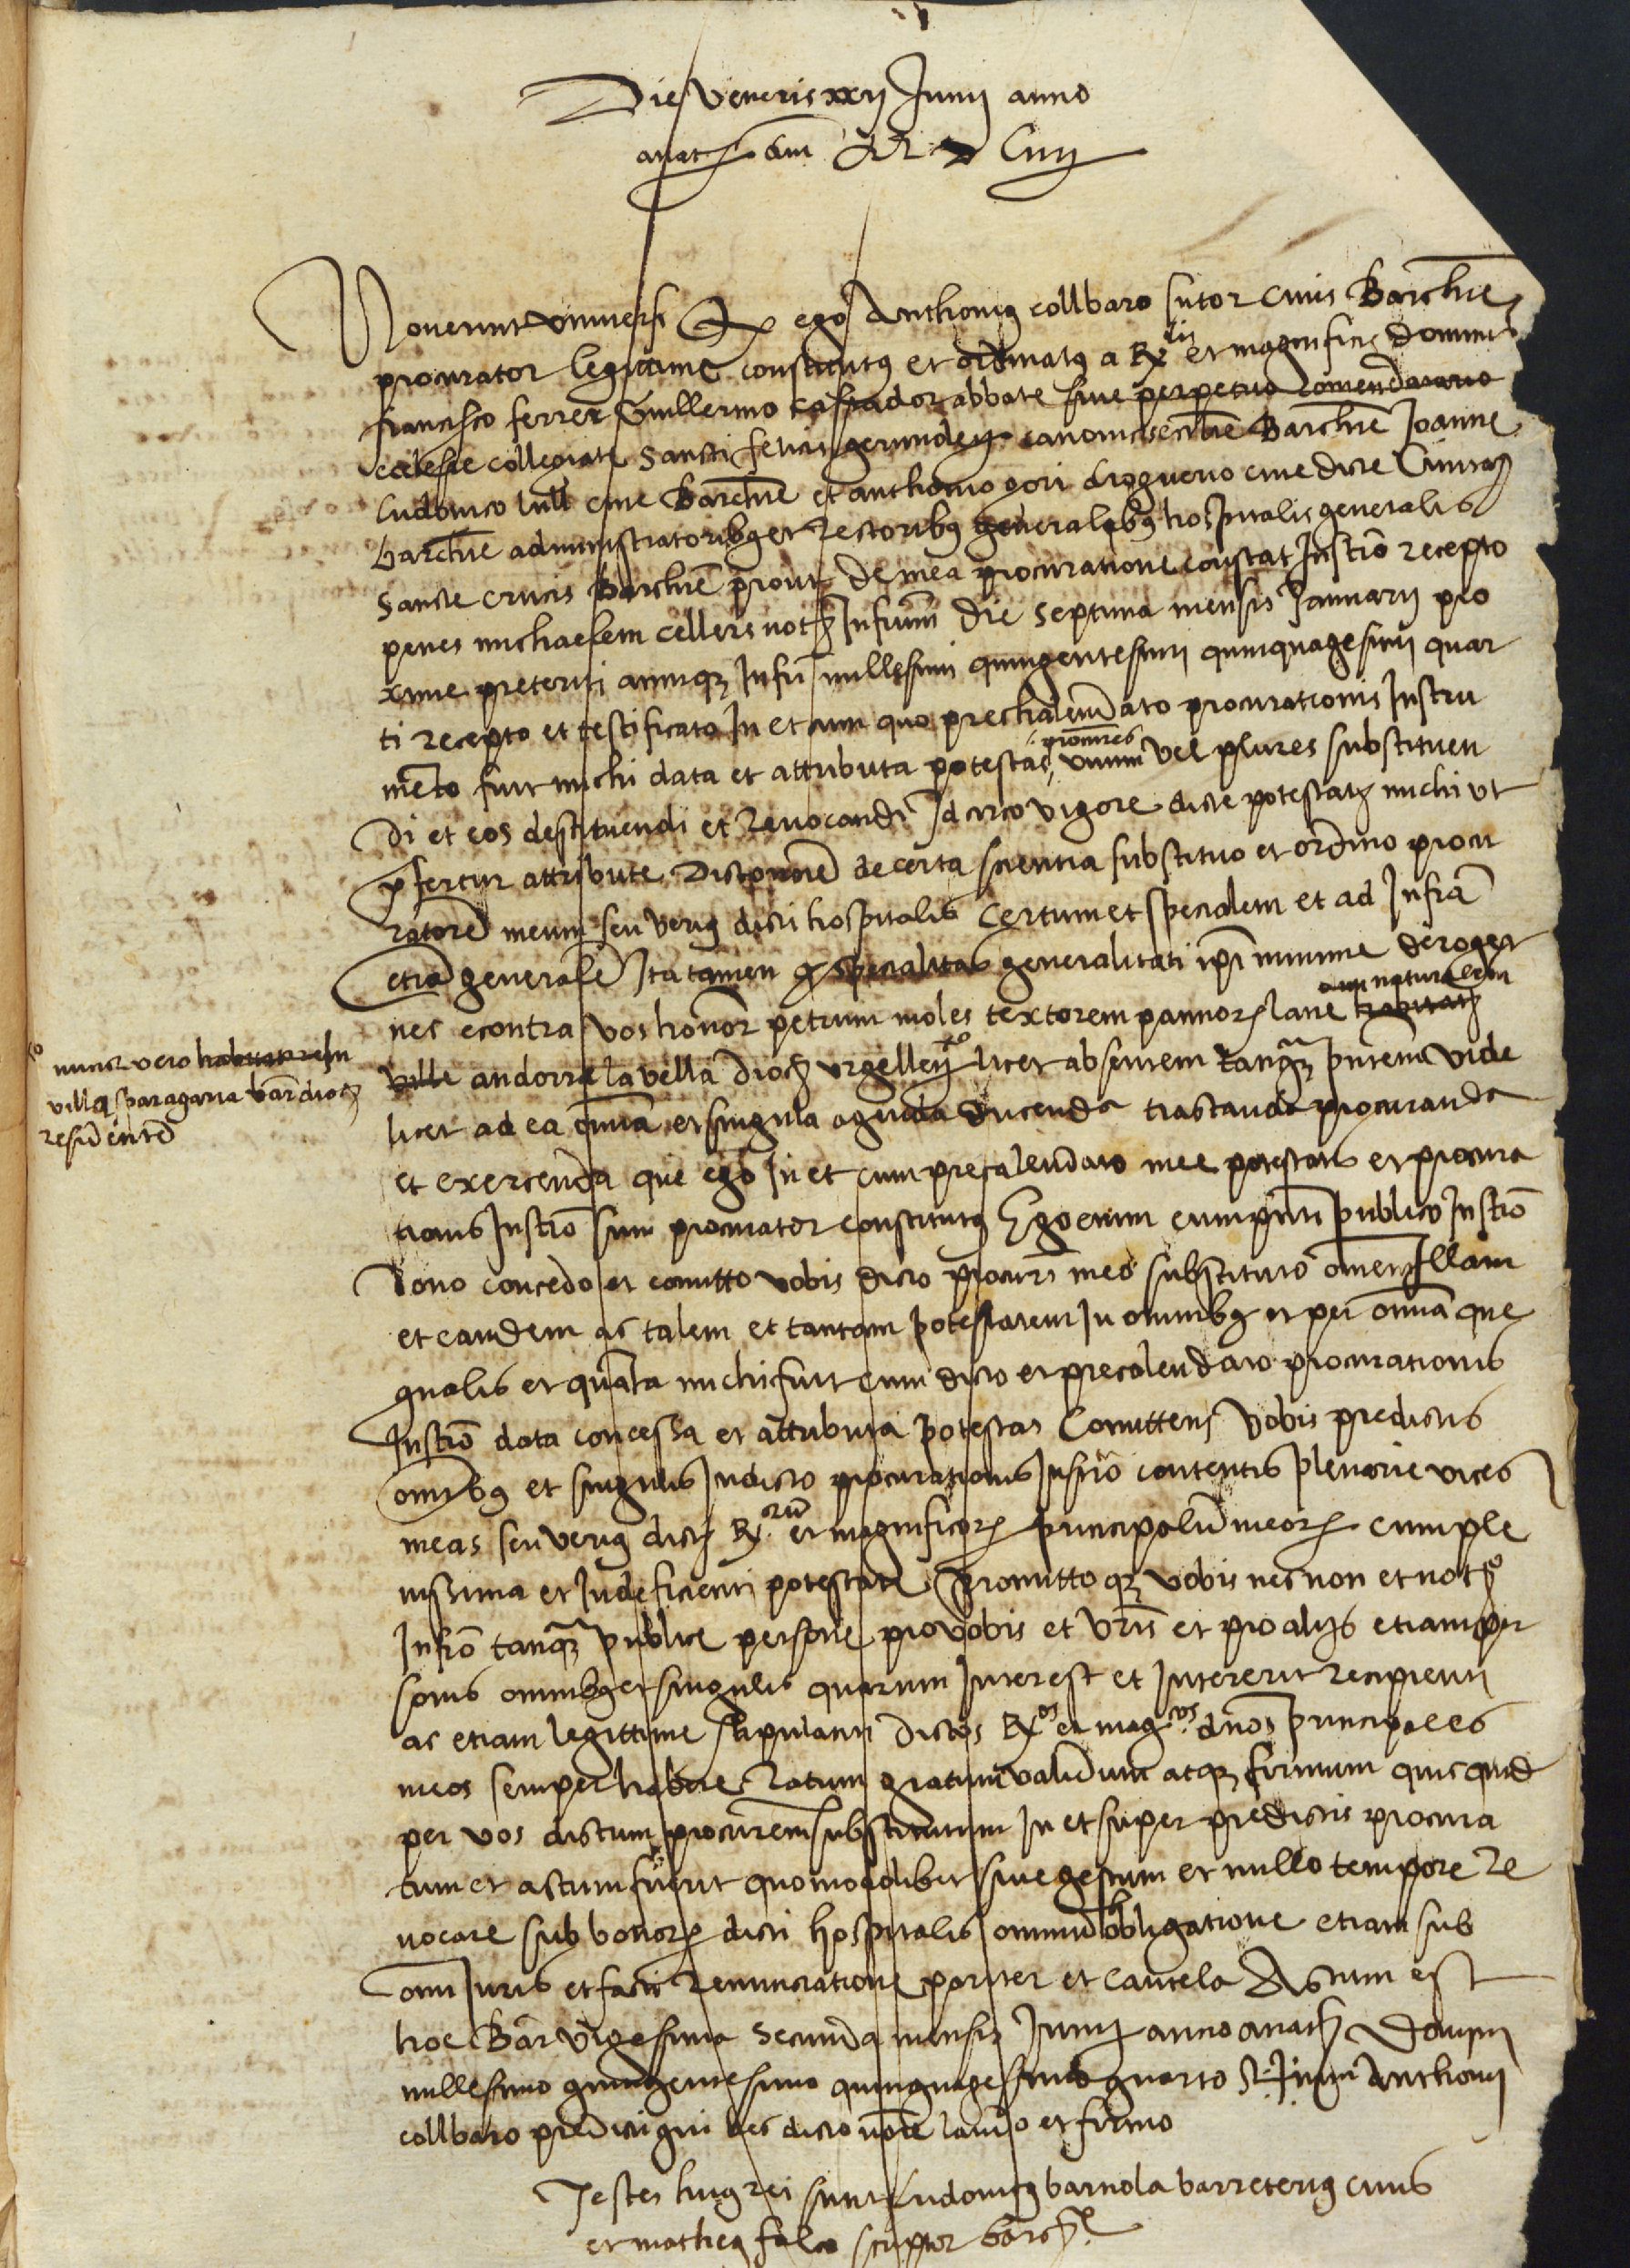 Die Veneris xxij Junij anno
a nat. dni M D Liiij
Noverint universi Q ego Anthonius collbaro sutor civis Barchne
procurator legitime constitutus et ordinatus a Rdis et magnificis dominis
francisco ferrer Guillermo cassador abbate sive perpetuo comendatario
ecclesie collegiate Sancti felicis gerunden canonicis ecclie Barchne Joanne
Ludovico lull cive Barchne et anthonio gori droguerio cive dicte Civitatis
barchne administratoribus et Rectoribus generalibus hospitalis generalis
Sancte crucis Barchne prout de mea procuratione constat Instro recepto
penes michaelem cellers not Infrm die septima mensis Januarii pro
xime preteriti annique Infri millesimi quingentesimi quinquagesimi quar
ti recepto et testificato In et cum quo prechalendato procurationis Instru
mento fuit michi data et attributa potestas procures unum vel plures substituen
di et eos destituendi et Revocandi Idcirco vigore dicte potestatis michi ut
pfertur attribute Dicto nomine de certa scientia substituo et ordino procu
ratorem meum seu verius dicti hospitalis certum et specialem et ad Infra
etiam generalem Ita tamen q specialitas generalitati ipsi minime deroget
nec econtra vos honor petrum moles textorem pannorum lane habitatorem naturalem
ville andorra la vella dioc urgellen licet absentem tanquam pntem vide
nunc vero habitatorem In
villa sparagaria bar dioc
residentem
licet ad ea omnia et singula agenda ducenda tractanda procuranda
et exercenda que ego In et cum precalendato mee potestatis et procura
tionis Instro sum procurator constitutus Ego enim cum pnti publico Instro
dono concedo et comitto vobis dicto procuri meo substituto omnem Illam
et eandem ac talem et tantam potestatem In omnibus et per omnia que
qualis et quanta michi fuit cum dicto et precalendato procurationis
Instro data concessa et attributa potestas Comittens vobis predictis
omnibus et singulis In dicto procurationis Instro contentis plenarie vices
meas seu verius dictorum Rdorum et magnificorum principalium meorum cum ple
nissima et Indeficienti potestate Promitto que vobis nec non et notrio
Infro tanquam publice persone pro vobis et vris et pro aliis etiam per
sonis omnibus et singulis quarum Interest et Intererit recipienti
ac etiam legittime stipulanti dictos Rdos et magcos dnos principales
meos semper habere Ratum gratum validum atque firmum quicquid
per vos dictum procurem substitutum In et super predictis procura
tum et actum fuerit quomodolibet sive gestum et nullo tempore Re
vocare sub bonorum dicti hospitalis omnium obligatione etiam sub
omni Juris et facti renunciatione pariter et cautela Actum est
hoc Bar vigesima secunda mensis Junij anno a nat Domini
millesimo quingentesimo quinquagesimo quarto Signum Anthonij
collbaro predicti qui hec dicto nomine laudo et firmo
Testes huius rei sunt Ludovicus barnola barreterius civis
et matheus falco scriptor barchne